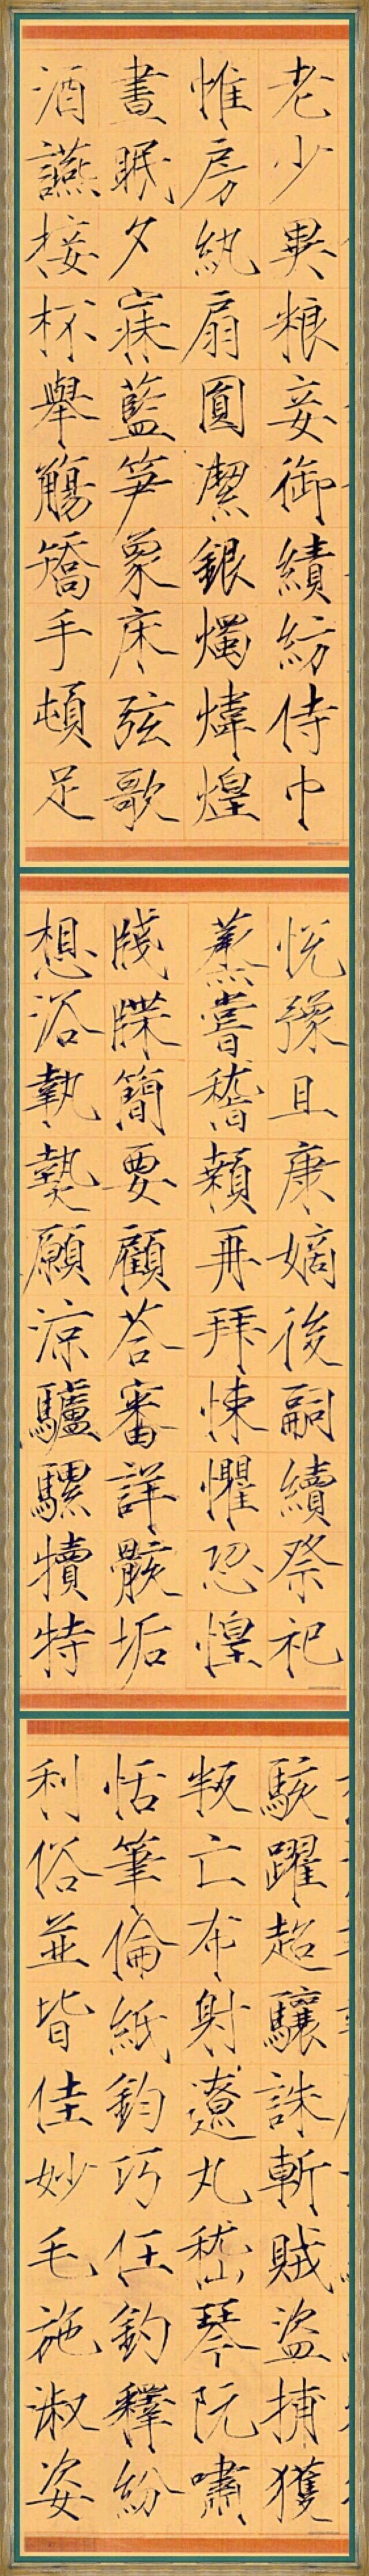 老少異粮妾御績紡侍巾
惟房紈扇圓潔銀燭煒煌
晝眠夕寐藍笋象床弦歌
酒讌接杯舉觴矯手頓足
悅豫且康嫡後嗣續祭祀
蒸嘗稽顙再拜悚懼恐惶
牋牒簡要顧荅審詳骸垢
想浴執熱願涼驢騾犢特
駭躍超驤誅斬賊盜捕獲
叛亡布射遼丸嵇琴阮嘯
恬筆倫紙鈞巧任釣釋紛
利俗並皆佳妙毛施淑姿